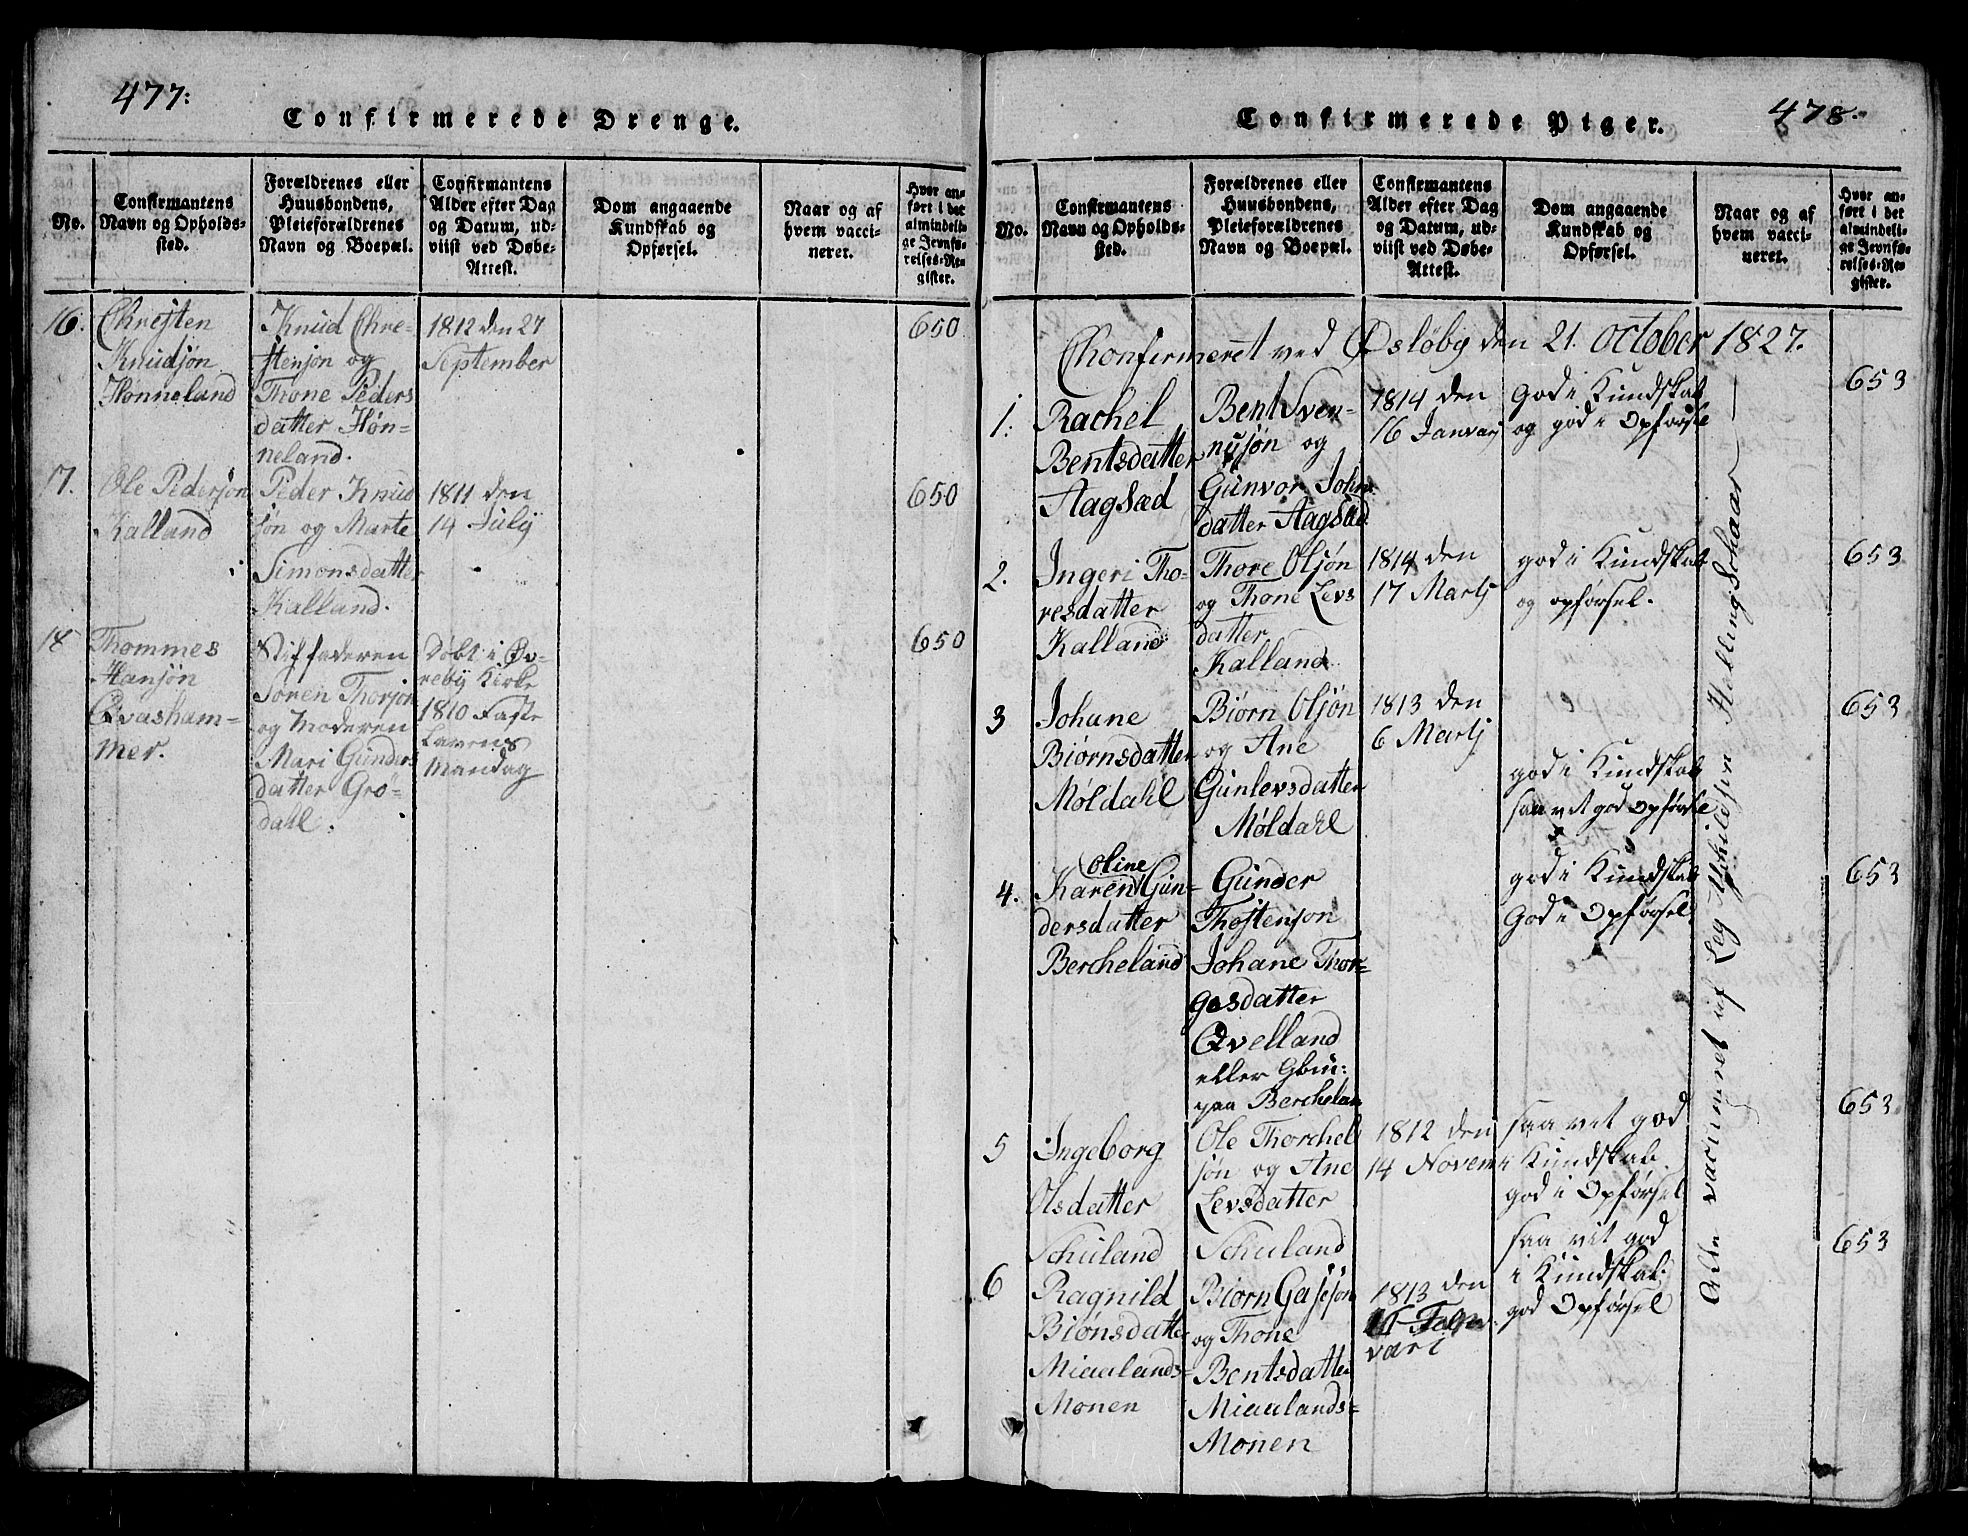 477:
Confirmerede Drenge.
No.
Confirmantens
Navn og Opholds-
sted.
Forældrenes eller
Huusbondens,
Pleieforældrenes
Navn og Boepæl.
Confirmantens
Alder efter Dag
og Datum, ud-
viist ved Døbe-
Attest.
Dom angaaende
Kundskab og
Opførsel.
Naar og af
hvem vacci-
neret.
Hvor an-
ført i det
almindeli-
ge Jevnfø-
relses-Re-
gister.
16.
Chresten
Knudsøn
Hønneland
Knud Chre-
stensøn og
Thone Peders
datter Høn-
neland.
1812 den 27
September
650
17.
Ole Pedersøn
Kalland
Peder Knud
søn og Marte
Simonsdatter
Kalland.
1811 den
14 Julij
650
18
Thommes
Hansøn
Qvasham-
mer.
Stiffaderen
Søren Thorsøn
og Moderen
Mari Gunders
datter Grø-
dahl.
Døbt i Øv-
rebÿ Kirke
1810 Faste
Lavens
Mandag
650
478.
Confirmerede Piger.
No.
Confirmantens
Navn og Opholds-
sted.
Forældrenes eller
Huusbondens,
Pleieforældrenes
Navn og Boepæl.
Confirmantens
Alder efter Dag
og Datum, ud-
viist ved Døbe-
Attest.
Dom angaaende
Kundskab og
Opførsel.
Naar og af
hvem vacci-
neret.
Hvor an-
ført i det
almindeli-
ge Jevnfø-
relses-Re-
gister.
Chonfirmeret ved Øsløbÿ den 21. October 1827.
1.
Rachel
Bentsdatter
Aagsæd
Bent Sven-
nusøn og
Gunvor Johns
datter Aagsæd
1814 den
16 Janvarj
god i Kundskab
og god i Opførsel
653
2.
Ingeri Tho-
resdatter
Kalland
Thore Olsøn
og Thone Levs
datter
Kalland
1814 den
17 Martj
god i Kundskab
og opførsel.
653
3
Johane
Biørnsdatter
Møldahl
Biørn Olsøn
og Ane
Gunlevsdatter
Møldahl
1813 den
6 Martj
god i Kundskab
saavet god Opførsel
653
4.
Oline
Karen Gun-
dersdatter
Bercheland
Gunder
Thostensøn
Johane Thor-
gesdatter
Qvelland
eller
paa Berchelan
god i Kundskab
God i Opførsel
653
5
Ingeborg
Olsdatter
Schuland
Ole Thorchel
søn og Ane
Levsdatter
Schuland
1812 den
14 Novem
saa vet god
i Kundskab
god i Opførsel
653
6
Ragnild
Biønsdatte
Miaalands-
Monen
Biørn Gasesøn
og Thone
Bentsdatter
Miaalands-
Monen
1813 den
vari
saa vet god
i Kundskab.
god Opførsel
653
Alle vaccineret af